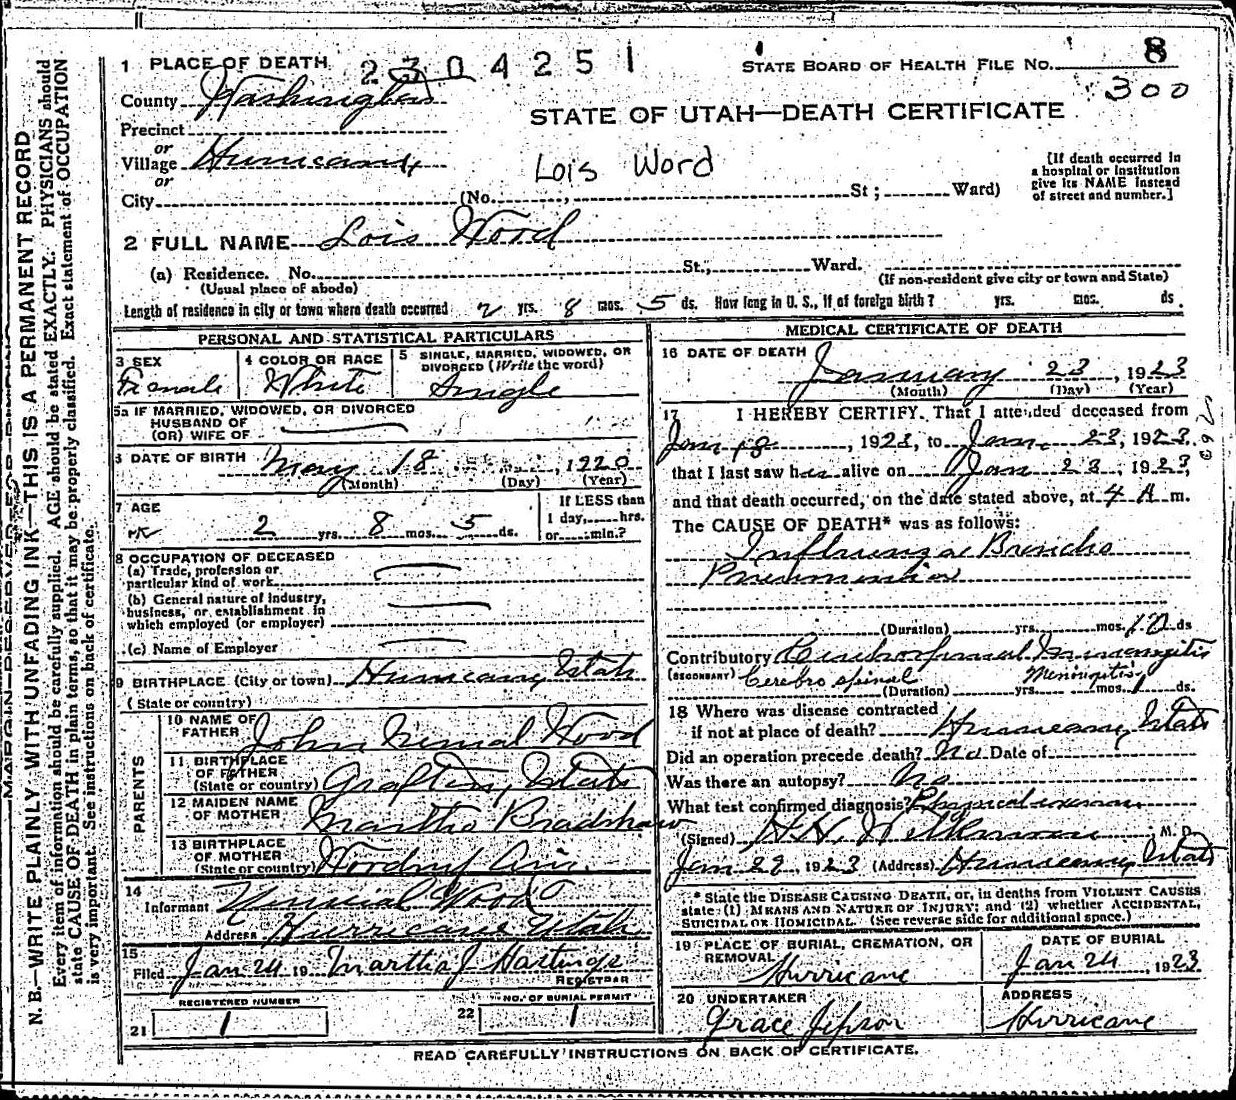 1 PLACE OF DEATH 2304251 STATE BOARD OF HEALTH FILE NO. 8
300
County Washington
STATE OF UTAH—DEATH CERTIFICATE
Precinct
or
Village Hurricane
or
Lois Word
[If death occurred in a hospital or institution give its NAME instead of street and number.]
City (No. , St ; Ward)
2 FULL NAME Lois Wood
(a) Residence. No. St., Ward.
(Usual place of abode) (If non-resident give city or town and State)
Length of residence in city or town where death occurred 2 yrs. 8 mos. 5 ds. How long in U. S., if of foreign birth? yrs. mos. ds.
PERSONAL AND STATISTICAL PARTICULARS
3 SEX Female
4 COLOR OR RACE White
5 SINGLE, MARRIED, WIDOWED, OR DIVORCED (Write the word) Single
5a IF MARRIED, WIDOWED, OR DIVORCED
HUSBAND OF
(OR) WIFE OF
6 DATE OF BIRTH May 18, 1920
(Month) (Day) (Year)
7 AGE 2 yrs. 8 mos. 5 ds.
If LESS than
1 day, hrs.
or min.?
8 OCCUPATION OF DECEASED
(a) Trade, profession or
particular kind of work
(b) General nature of industry,
business, or establishment in
which employed (or employer)
(c) Name of Employer
9 BIRTHPLACE (City or town) Hurricane, Utah
(State or country)
PARENTS
10 NAME OF FATHER John Wood
11 BIRTHPLACE OF FATHER (State or country) Grafton, Utah
12 MAIDEN NAME OF MOTHER Martha Bradshaw
13 BIRTHPLACE OF MOTHER (State or country) Woodruf Ariz.
14 Informant Wood
Address Hurricane Utah
15 Filed Jan 24 19 Martha J Hastings
REGISTRAR
REGISTERED NUMBER
21 1
NO. OF BURIAL PERMIT
22 1
MEDICAL CERTIFICATE OF DEATH
16 DATE OF DEATH January 23, 1923
(Month) (Day) (Year)
17 I HEREBY CERTIFY. That I attended deceased from
Jan 18, 1923, to Jan. 23, 1923
that I last saw her alive on Jan 23, 1923
and that death occurred, on the date stated above, at 4 A m.
The CAUSE OF DEATH* was as follows:
Influenza Broncho
Pneumonia
(Duration) yrs. mos. 10 ds
Contributory Cerebrospinal Miningitis
(SECONDARY) Cerebro spinal Meningitis
(Duration) yrs. mos. 1 ds.
18 Where was disease contracted
if not at place of death? Hurricane, Utah
Did an operation precede death? No Date of
Was there an autopsy? No
What test confirmed diagnosis? Physical
(Signed) Wilkinson M. D.
Jan 1923 (Address) Hurricane, Utah
* State the DISEASE CAUSING DEATH, or, in deaths from VIOLENT CAUSES
state (1) MEANS AND NATURE OF INJURY; and (2) whether ACCIDENTAL,
SUICIDAL OR HOMICIDAL. (See reverse side for additional space.)
19 PLACE OF BURIAL, CREMATION, OR REMOVAL Hurricane
DATE OF BURIAL Jan 24, 1923
20 UNDERTAKER Grace Jepson
ADDRESS Hurricane
READ CAREFULLY INSTRUCTIONS ON BACK OF CERTIFICATE.
N. B.—WRITE PLAINLY WITH UNFADING INK—THIS IS A PERMANENT RECORD
Every item of information should be carefully supplied. AGE should be stated EXACTLY. PHYSICIANS should
state CAUSE OF DEATH in plain terms, so that it may be properly classified. Exact statement of OCCUPATION
is very important. See instructions on back of certificate.